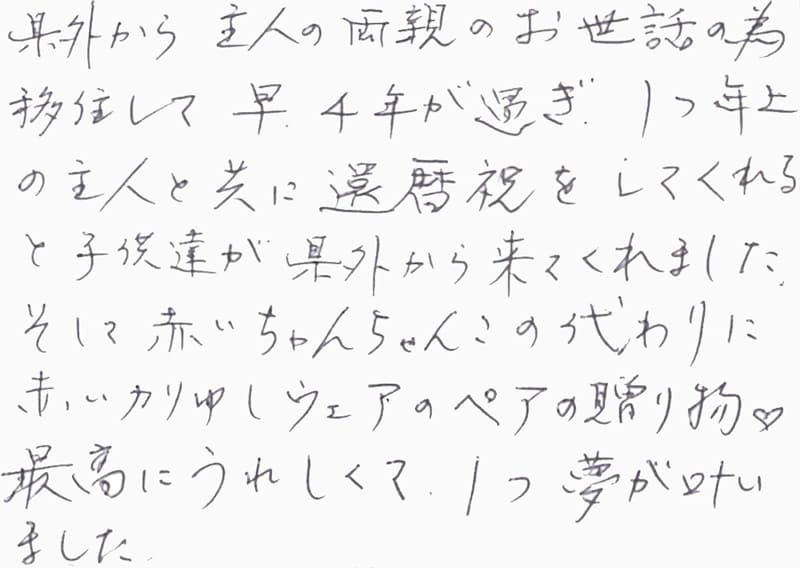 県外から主人の両親のお世話の為
移住して早、4年が過ぎ、1つ年上
の主人と共に還暦祝をしてくれる
と子供達が県外から来てくれました。
そして赤いちゃんちゃんこの代わりに
赤いカリゆしウェアのペアの贈り物♡
最高にうれしくて、1つ夢が叶い
ました。